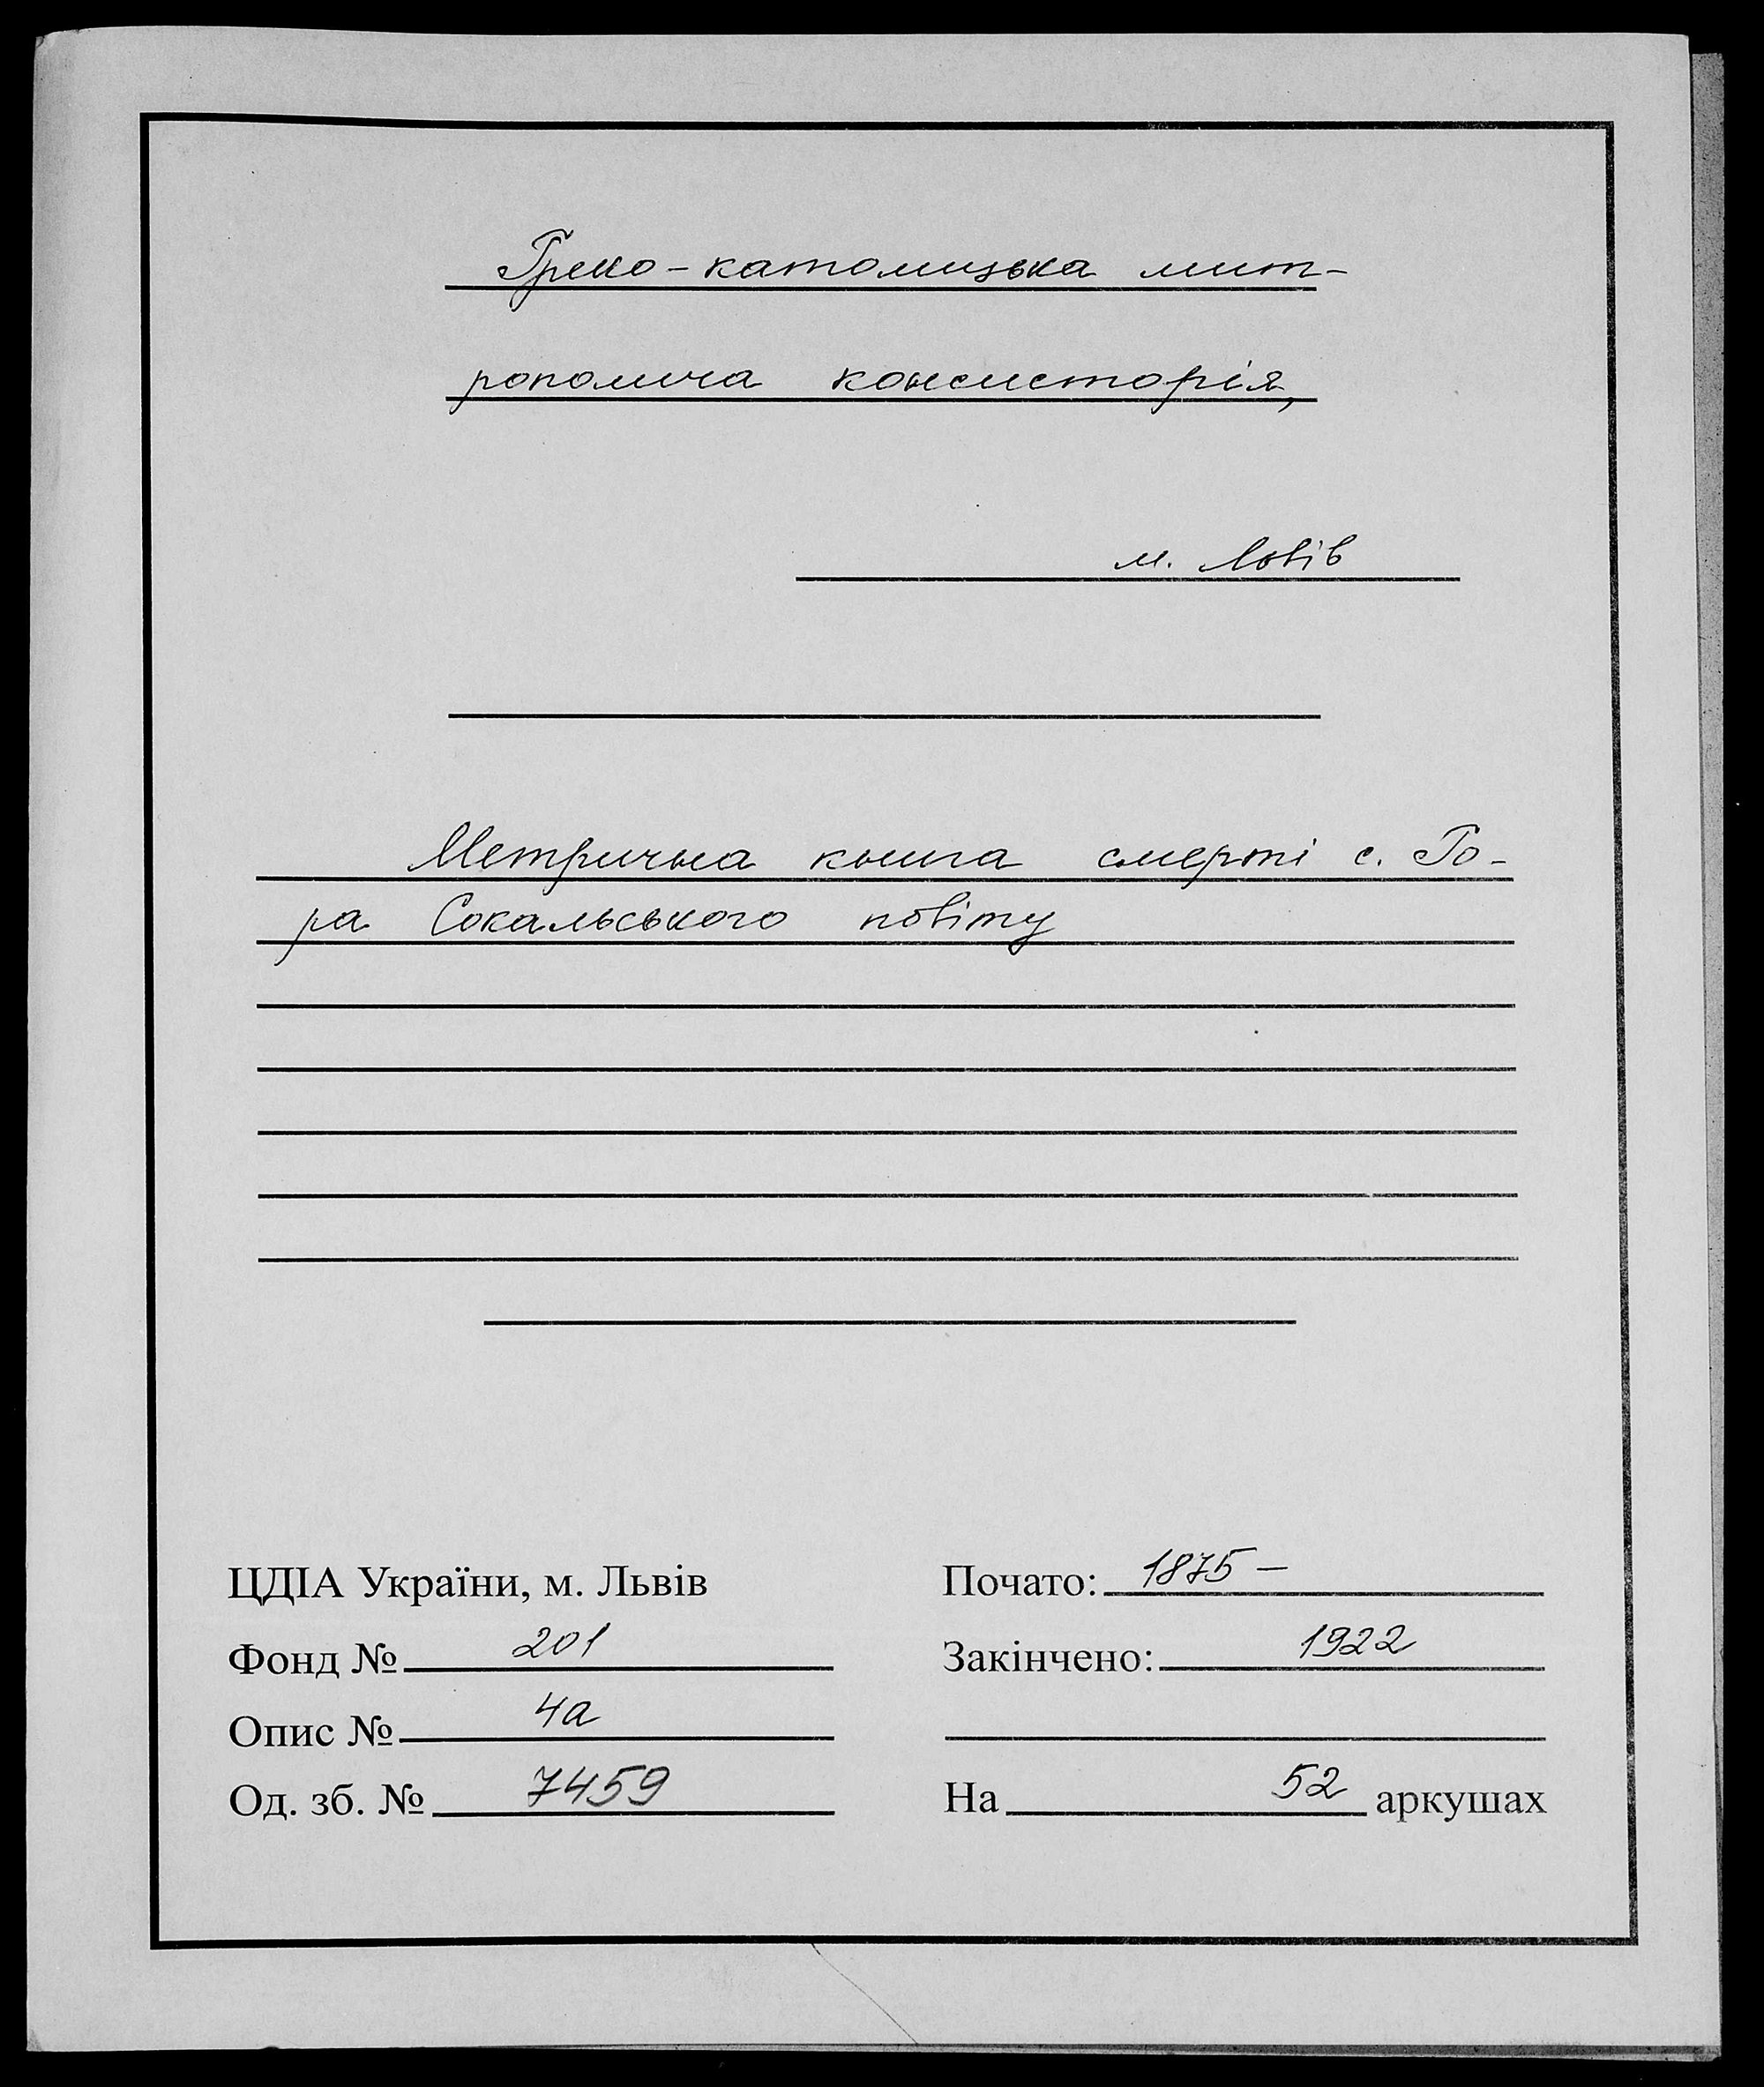 Греко-католицька мит-
рополича консисторія,
м. Львів
Метрична книга смерті с. Го-
ра Сокальського повіту
ЦДІА України, м. Львів
Фонд № 201
Опис № 4а
Од. зб. № 7459
Почато: 1875 –
Закінчено: 1922
На 52 аркушах